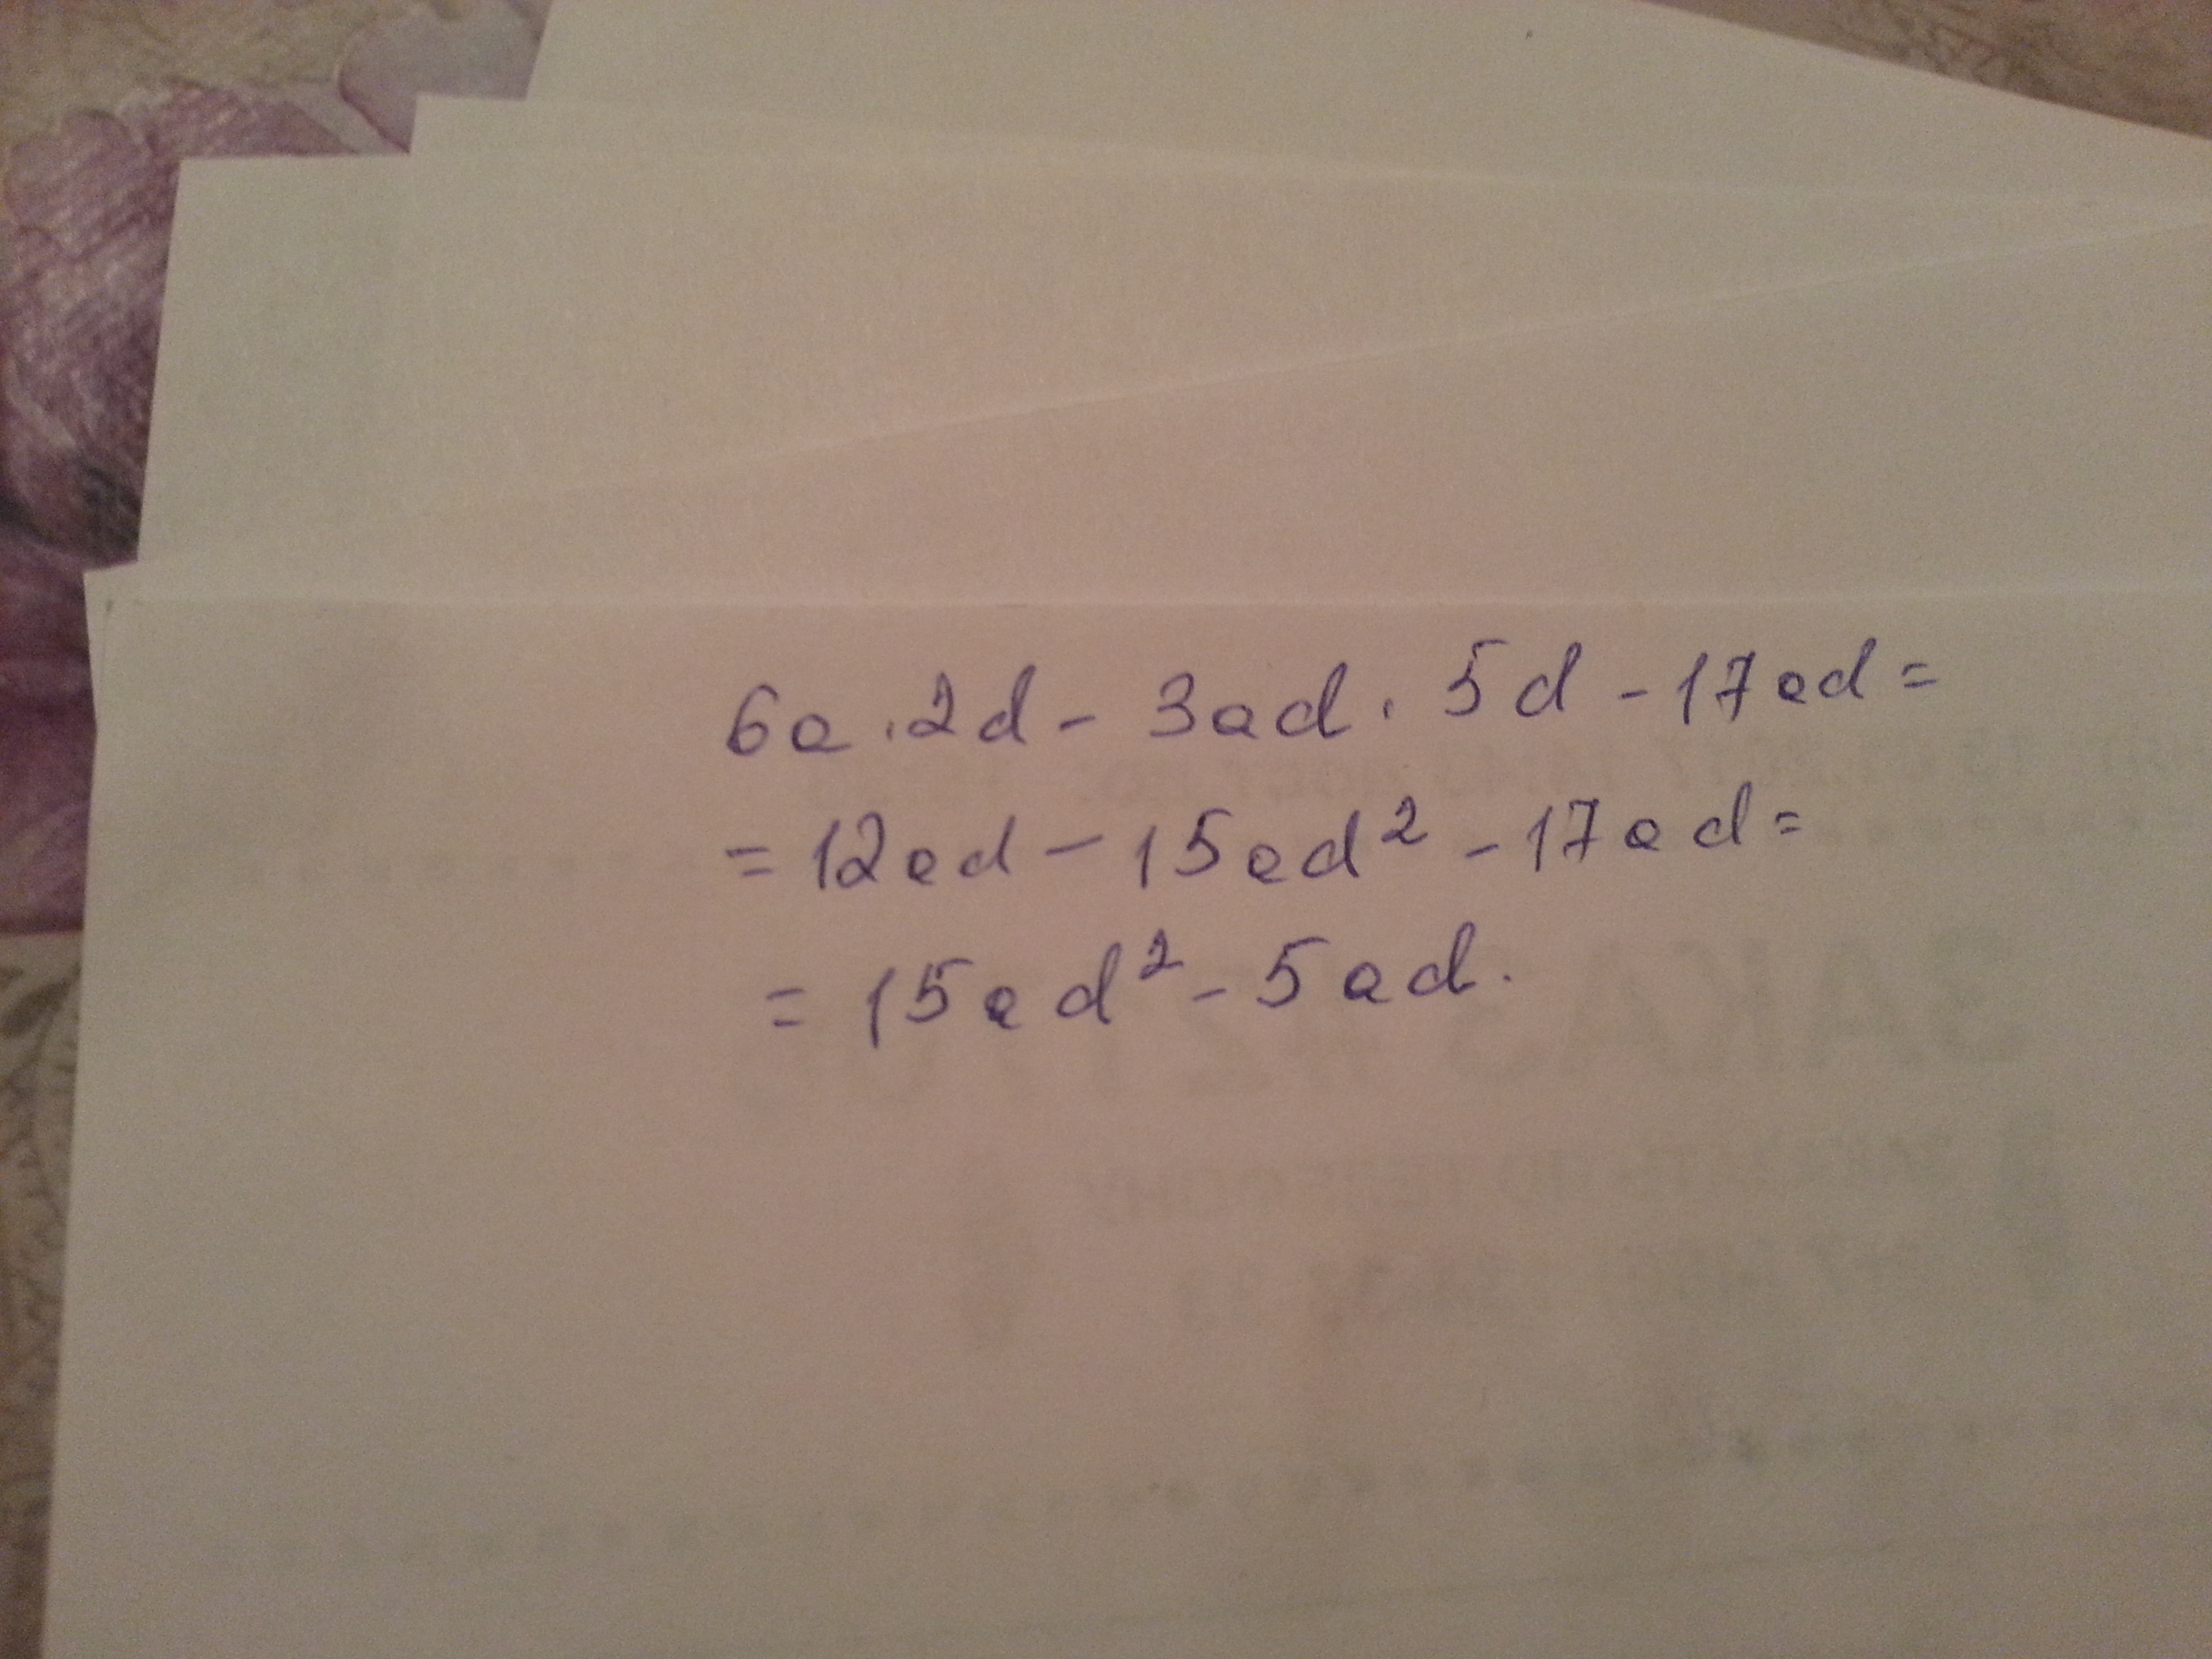 6a · 2d - 3ad · 5d - 17ad =
= 12ad - 15ad² - 17ad =
= 15ad² - 5ad.